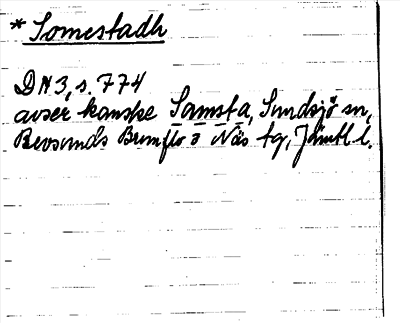 * Somestadh
DN 3, s. 774
avser kanske Samsta, Sundsjö sn,
Revsunds Brunflo o Näs tg, Jämtl l.